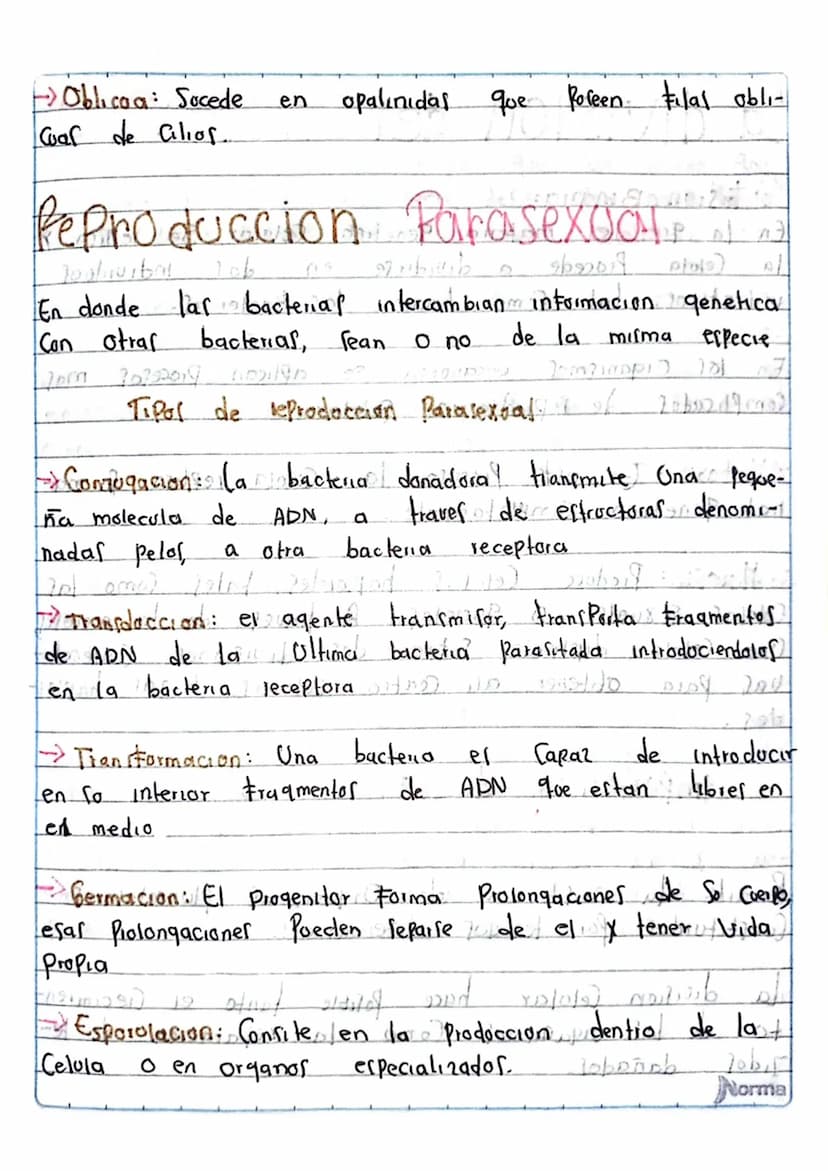 → Oblicua: Sucede en opalinidas que Poseen filas obli-
cuas de Cilios.
Reproduccion Parasexual
En donde las bacterias intercambian informacion genetica
Con otras bacterias, sean o no de la misma especie
Tipos de reproduccion Parasexual
→ Conjugacion: La bacteria donadora transmite Una Peque-
ña molecula de ADN, a traves de estructuras denomi-
nadas pelos, a otra bacteria receptora
→ Transduccion: el agente transmisor, transPorta fragmentos
de ADN de la Ultima bacteria Parasitada introduciendolos
en la bacteria receptora
→ Transformacion: Una bacteria es Capaz de introducir
en su interior fragmentos de ADN que estan libres en
el medio
→ Germacion: El Progenitor Forma Prolongaciones de Su Cuerpo,
esas Prolongaciones Pueden Separse de el y tener Vida
Propia
→ Esporulacion: Consite en la Produccion dentro de la
Celula o en organos especializados.
Norma